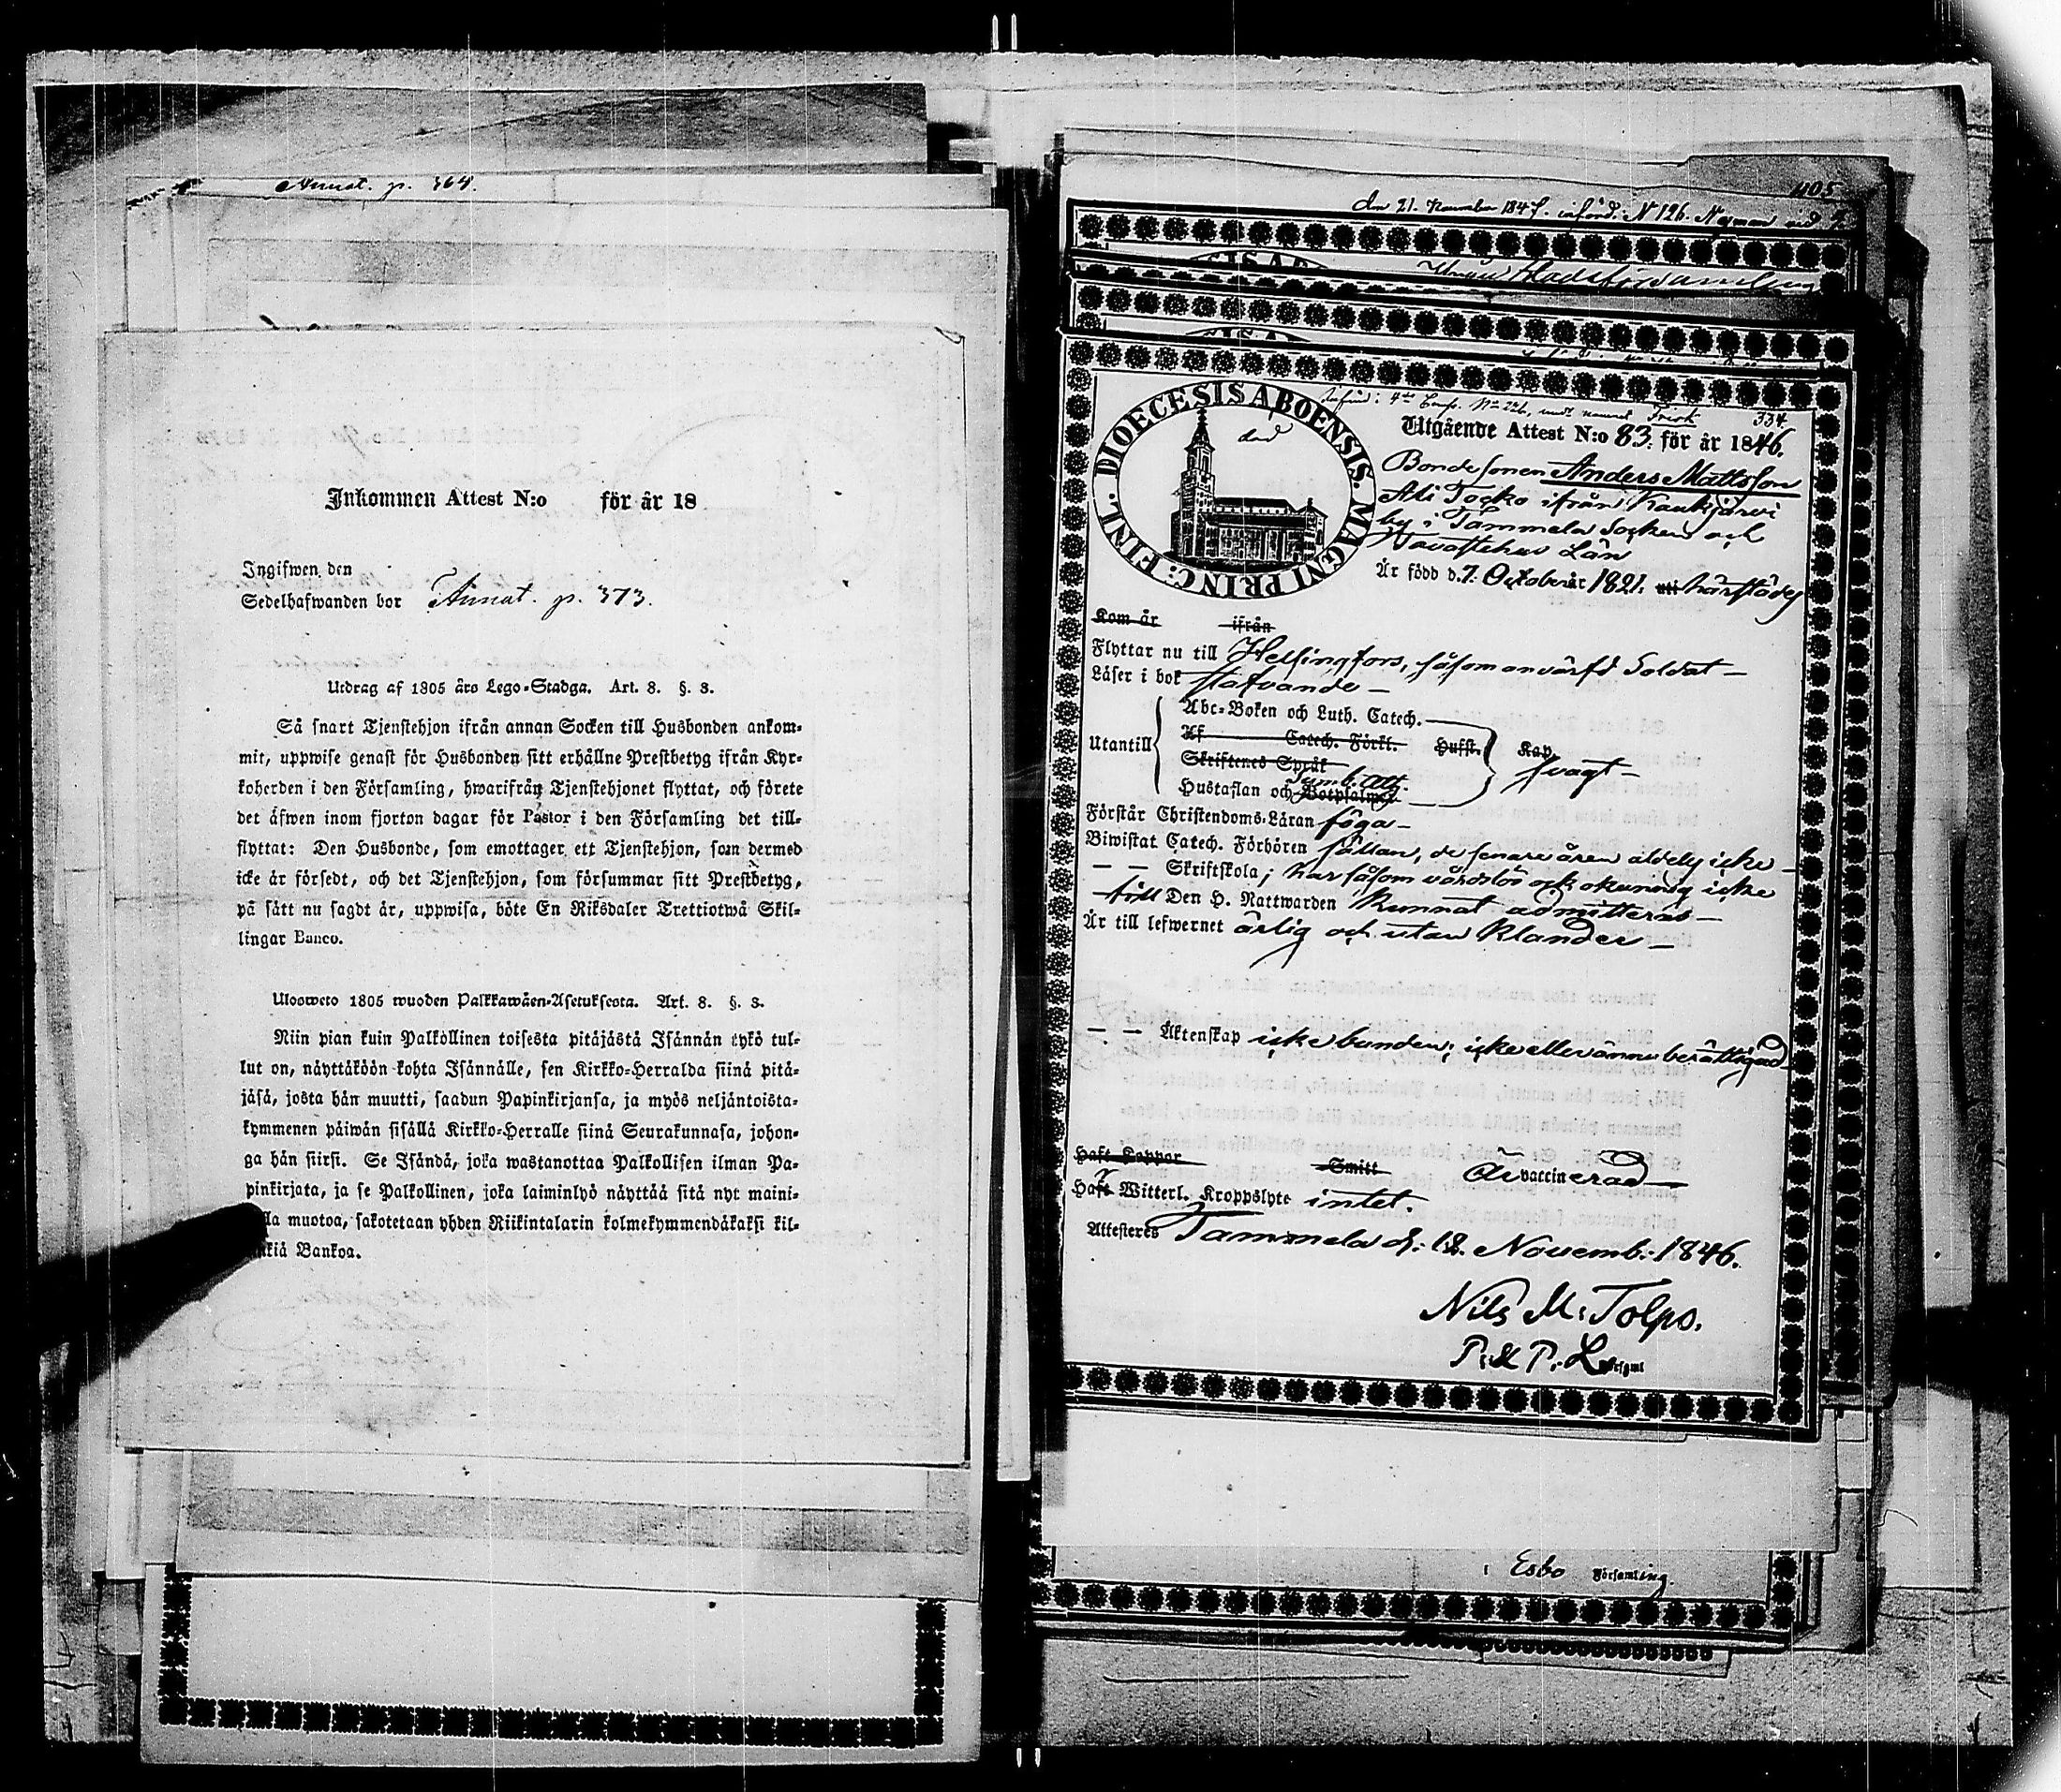 Annot. p. 364.
Inkommen Attest N:o för år 18
Ingifwen den
Sedelhafwanden bor Annot. p. 373.
Utdrag af 1805 års Lego-Stadga. Art. 8. §. 3.
Så snart Tjenstehjon ifrån annan Socken till Husbonden ankom-
mit, uppwise genast för Husbonden sitt erhållne Prestbetyg ifrån Kyr-
koherden i den Församling, hwarifrån Tjenstehjonet flyttat, och förete
det äfwen inom fjorton dagar för Pastor i den Församling det till-
flyttat: Den Husbonde, som emottager ett Tjenstehjon, som dermed
icke är försedt, och det Tjenstehjon, som försummar sitt Prestbetyg,
på sätt nu sagdt är, uppwisa, böte En Riksdaler Trettiotwå Skil-
lingar Banco.
Ulosweto 1805 wuoden Palkkawäen-Asetuksesta. Art. 8. §. 3.
Niin pian kuin Palkollinen toisesta pitäjästä Isännän tykö tul-
lut on, näyttäköön kohta Isännälle, sen Kirkko-Herralda siinä pitä-
jäsä, josta hän muutti, saadun Papinkirjansa, ja myös neljäntoista-
kymmenen päiwän sisällä Kirkko-Herralle siinä Seurakunnasa, johon-
ga hän siirsi. Se Isändä, joka wastanottaa Palkollisen ilman Pa-
pinkirjata, ja se Palkollinen, joka laiminlyö näyttää sitä nyt maini-
lla muotoa, sakotetaan yhden Riikintalarin kolmekymmendäkaksi kil-
Bankoa.
405
den 21. November 1847. införd. N 126. Nyman
Stadsförsamling
införd: 4de Comp. No 226, med namnet Frisk 334.
DIOECESIS ABOENSIS. MAGNI PRINC: FINL.
död
Utgående Attest N:o 83. för år 1846.
Bondesonen Anders Mattsson
Ali Tocko ifrån Kaukjärvi
by i Tammela Socken och
Tavastehus Län
Är född d. 7. October år 1821. uti härstädes
Kom år ifrån
Flyttar nu till Helsingfors, såsom anvärfd Soldat –
Läser i bok stafvande –
Utantill
Abc-Boken och Luth. Catech.
Af Catech. Förkl. Hufst. Kap.
Skriftenes Språk
Symb. Ath.
Hustaflan och Botpsalmer
svagt –
Förstår Christendoms-Läran föga –
Biwistat Catech. Förhören sällan, de senare åren aldeles icke –
– – Skriftskola; har såsom vårdslös och okunnig icke
till Den H. Nattwarden kunnat admitteras –
Är till lefwernet ärlig och utan klander –
– – Äktenskap icke bunden; icke eller ännu berättigad –
Haft Koppor Smitt Är vaccinerad –
Haft Witterl. Kroppslyte intet.
Attesteras Tammela d: 18. Novemb: 1846.
Nils M: Tolpo.
P. & P. L. Församl
i Esbo Församling.